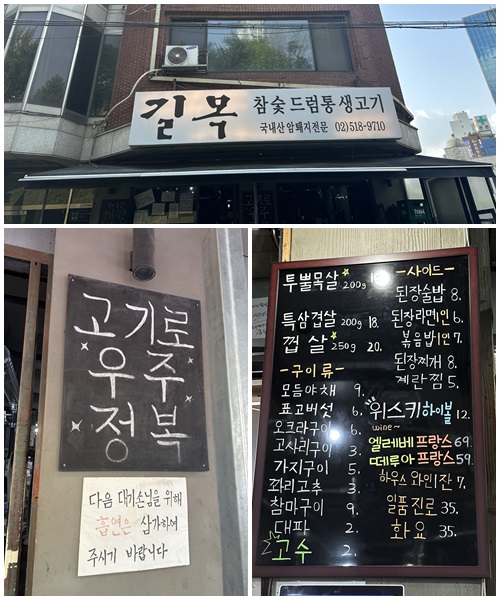 길목 참숯드럼통생고기
국내산 암퇘지전문 02)518-9710
고기로
우주
정복
다음 대기손님을 위해
흡연은 삼가하여
주시기 바랍니다
투뿔목살 200g
특삼겹살 200g 18.
껍살 250g 20.
-구이류-
모듬야채 9.
표고버섯 6.
오크라구이 6.
고사리구이 3.
가지구이 5.
꽈리고추 3.
참마구이 9.
대파 2.
고수 2.
-사이드-
된장술밥 8.
된장라면1인 6.
볶음밥1인 7.
된장찌개 8.
계란찜 5.
위스키하이볼 12.
wine~
엘레베프랑스 69.
떼루아프랑스 59.
하우스와인잔 7.
일품진로 35.
화요 35.